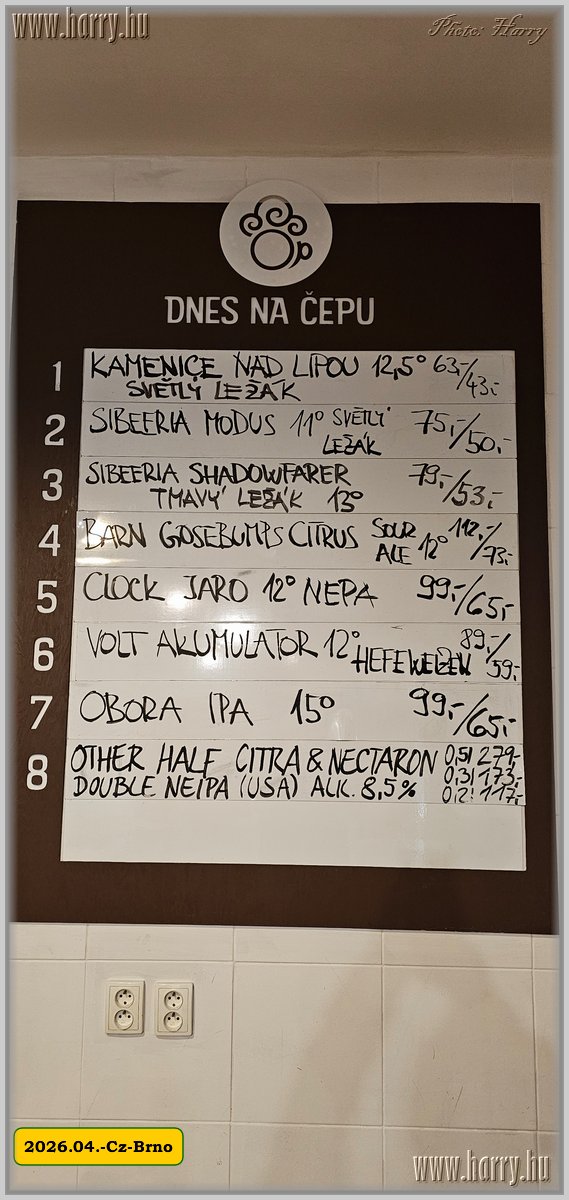 www.harry.hu
Photo: Harry
DNES NA ČEPU
1 KAMENICE NAD LIPOU 12,5° 63,-/43,-
SVĚTLÝ LEŽÁK
2 SIBEERIA MODUS 11° SVĚTLÝ 75,-/50,-
LEŽÁK
3 SIBEERIA SHADOWFARER 79,-/53,-
TMAVÝ LEŽÁK 13°
4 BARN GOSEBUMPS CITRUS SOUR ALE 12° 112,-/73,-
5 CLOCK JARO 12° NEPA 99,-/65,-
6 VOLT AKUMULATOR 12° HEFEWEIZEN 89,-/59,-
7 OBORA IPA 15° 99,-/65,-
8 OTHER HALF CITRA & NECTARON 0,5l 279,-
0,3l 173,-
DOUBLE NEIPA (USA) ALK. 8,5% 0,2l 117,-
2026.04.-Cz-Brno
www.harry.hu